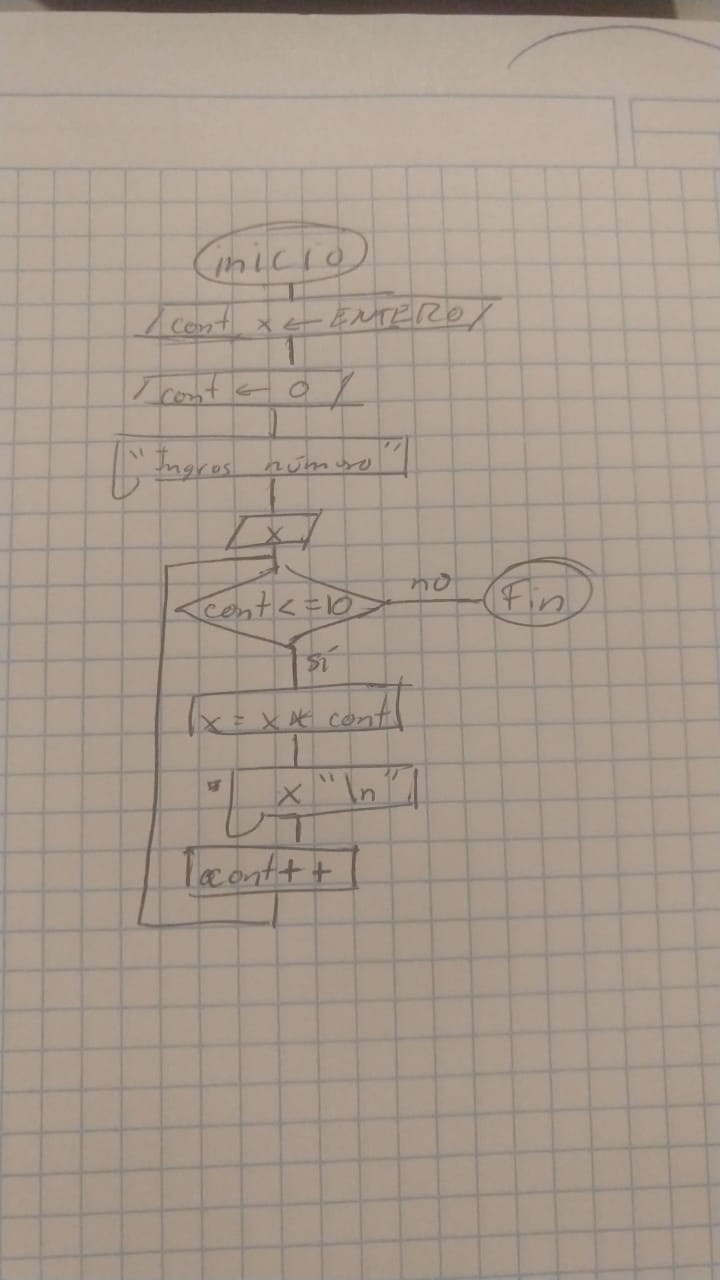 inicio
cont, x ← ENTERO
cont ← 0
"Ingres número"
x
cont <= 10
no
Fin
sí
x = x * cont
x "\n"
cont++